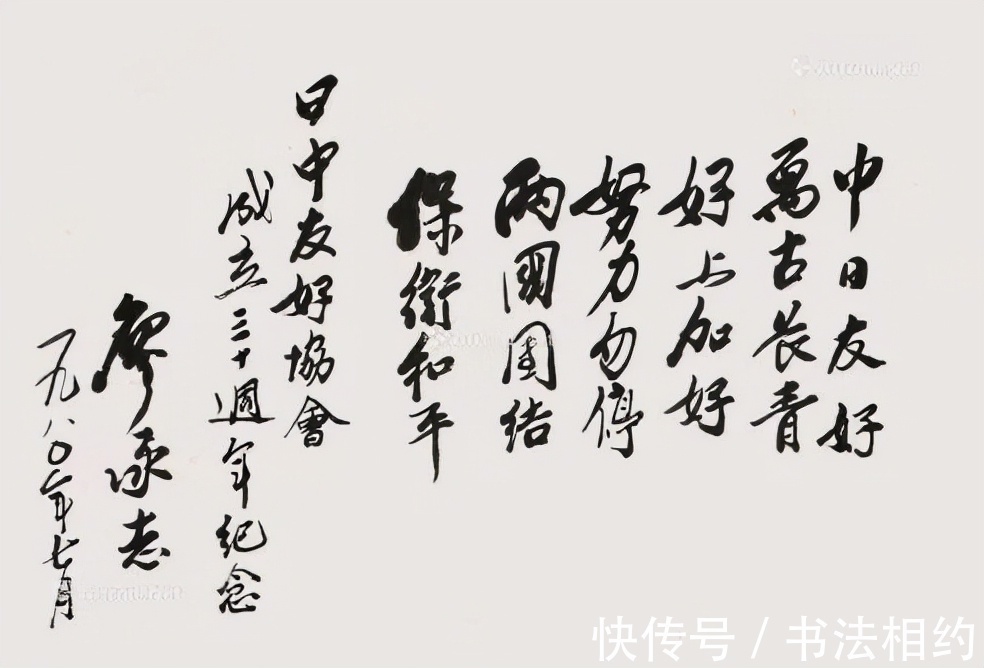 中日友好
萬古长青
好上加好
努力勿停
两國团结
保衛和平
日中友好協會
成立三十週年纪念
廖承志
一九八〇年七月
快传号 / 书法相约